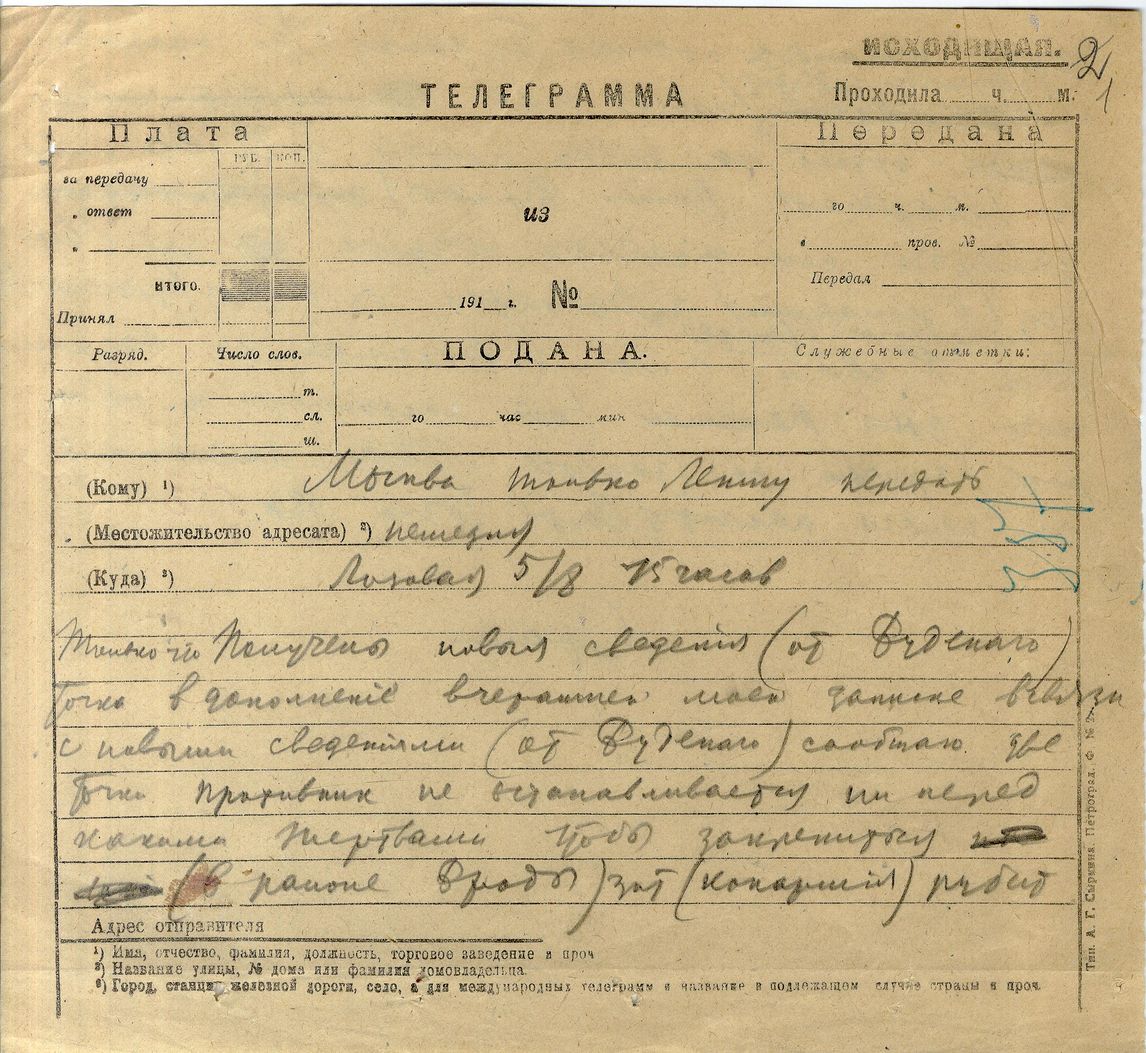 ИСХОДЯЩАЯ.
2
1
ТЕЛЕГРАММА
Проходила ч. м.
Плата
Передана
РУБ. КОП.
за передачу
„ ответ
„
из
го ч. м.
в пров. №
ИТОГО.
Передал
191 г. №
Принял
Разряд.
Число слов.
ПОДАНА.
Служебные отметки:
т.
сл.
го час мин
ш.
(Кому) ¹)
Москва только Ленину передать
(Местожительство адресата) ²)
немедля
(Куда) ³)
Лозовая 5/8 15 часов
Только что Получены новыя сведения (от Буденаго)
Точка в дополнение вчерашней моей записке в связи
с новыми сведениями (от Буденаго) сообщаю две
Точки противник не останавливается ни перед
какими жертвами чтобы закрепиться
(в районе Броды) зпт (конармия) рубит
Адрес отправителя
¹) Имя, отчество, фамилия, должность, торговое заведение и проч
²) Название улицы, № дома или фамилия домовладельца.
³) Город, станция железной дороги, село, а для международных телеграмм и название в подлежащем случае страны и проч.
Тип. А. Г. Сыркина. Петроград. Ф № 2.